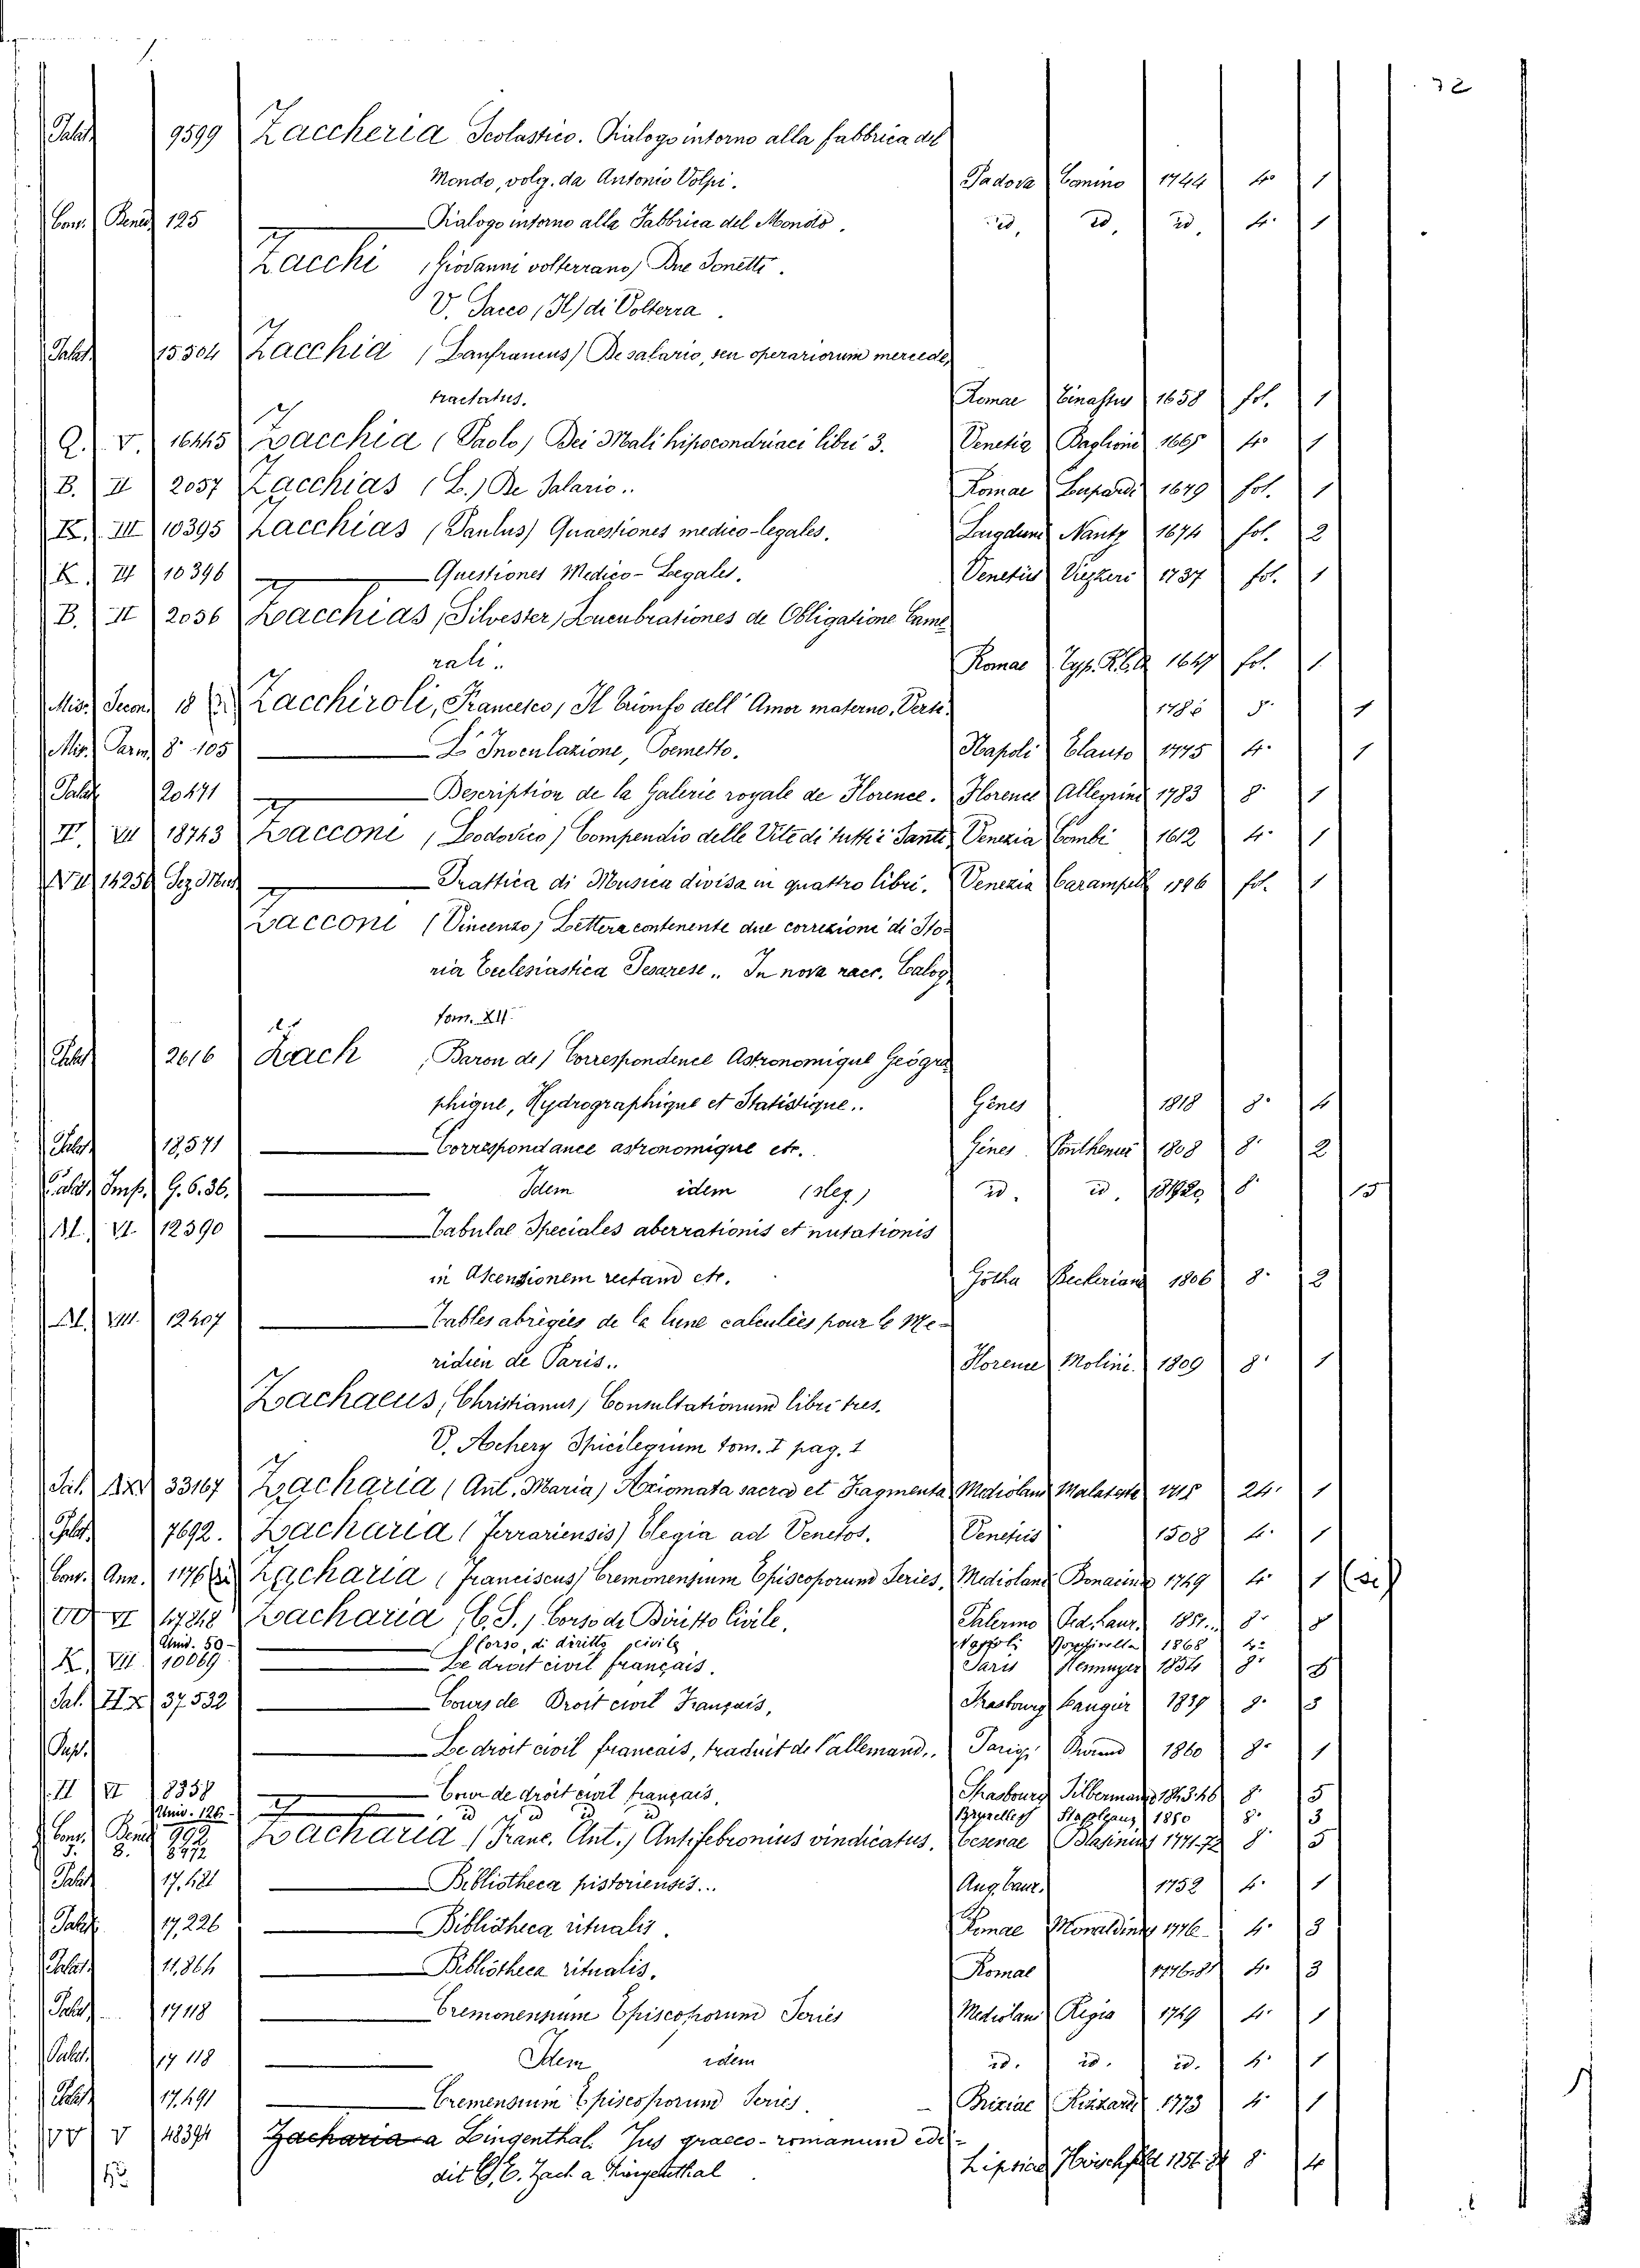 32
Palat. 9599 Zaccheria Scolastico. Dialogo intorno alla fabbrica del
Mondo, volg. da Antonio Volpi. Padova Comino 1744 4º 1
Conv. Benid 125 Dialogo intorno alla Fabbrica del Mondo. id. id. id. 4. 1
Zacchi (Giovanni volterrano) Due Sonetti.
V. Sacco (Il) di Volterra.
Palat. 15504 Zacchia (Lanfrancus) De salario, seu operariorum mercede,
tractatus. Romae 1658 fol. 1
Q. V. 16445 Zacchia (Paolo) Dei Mali hipocondriaci libri 3. Venetia Baglioni 1665 4º 1
B. II 2057 Zacchias (L.) De Salario.. Romae Lupardi 1649 fol. 1
K. III 10395 Zacchias (Paulus) Quaestiones medico-legales. Lugduni Nantz 1674 fol. 2
K. III 10396 Questiones Medico-Legales. Venetiis 1737 fol. 1
B. II 2056 Zacchias (Silvester) Lucubrationes de Obligatione Came
rali.. Romae Typ. R.C.A. 1647 fol. 1
Mis. 18 Zacchiroli, Francesco, Il trionfo dell'Amor materno. Versi. 1786 8. 1
Mis. Parm. 8º 105 L'Inoculazione, Poemetto. Napoli Clauso 1775 4. 1
Palat. 20471 Description de la Galerie royale de Florence. Florence Allegrini 1783 8. 1
II. VII 18743 Zacconi (Lodovico) Compendio delle Vite di tutti i Santi Venezia Combi 1612 4. 1
14250 Sez. Mus. Prattica di Musica divisa in quattro libri. Venezia Carampell 1596 fol. 1
Zacconi (Vincenzo) Lettera contenente due correzioni di Sto-
ria Ecclesiastica Pesarese.. In nova racc. Calog.
tom. XII.
Palat. 2616 Zach (Baron de) Correspondence Astronomique Géogra
phique, Hydrographique et Statistique.. Gênes 1818 8. 4
Palat. 12,571 Correspondance astronomique etc. Gênes Ponthenier 1808 8. 2
Palat. Imp. G. 6. 36. Idem idem (sleg.) id. id. 8. 15
M. VI. 12390 Tabulae Speciales aberrationis et nutationis
in Ascensionem rectam etc. Gotha Beckerian 1806 8. 2
M. VIII. 12407 Tables abrégées de la lune calculées pour le Me-
ridien de Paris.. Florence Molini. 1809 8. 1
Zachaeus, Christianus, Consultationum libri tres.
V. Achery Spicilegium tom. I pag. 1
Sal. 33167 Zacharia (Ant. Maria) Axiomata sacra et Fragmenta Mediolani Malatesta 1715 24. 1
Palat. 7692. Zacharia (Ferrariensis) Elegia ad Venetos. Venetiis 1508 4. 1
Conv. Ann. 1176 Zacharia (Franciscus) Cremonensium Episcoporum Series, Mediolani Bonacina 1749 4. 1 (sic)
VI 47248 Zacharia (C. S.) Corso di Diritto Civile. Palermo Ped. Laur. 185... 8. 8
Univ. 50 Corso di diritto civile Napoli 1868 4.
K. VII 10089 Le droit civil français. Paris Hennuyer 1854 8. 5
Sal. 37532 Cours de Droit civil Français, Strasbourg Langier 1839 8. 5
Le droit civil francais, traduit de l'allemand.. Parigi Durand 1860 8. 1
II VI 8358 Cour de droit civil français. Strasbourg Silbermann 8. 5
Univ. 126 id id id id Bruxelles Stapleaux 1850 8. 3
Conv. Benid 992 8472 Zacharia (Franc. Ant.) Antifebronius vindicatus. Cesenae Blasinius 1771-72 8. 5
Palat. 17,421 Bibliotheca historiensis... Aug. Taur. 1752 4. 1
Palat. 17,226 Bibliotheca ritualis. Romae Monaldini 1776 4. 3
Palat. 11,864 Bibliotheca ritualis. Romae 1776-81 4. 3
Palat. 17118 Cremonensium Episcoporum Series Mediolani Regia 1749 4. 1
Palat. 17 118 Idem idem id. id. id. 4. 1
Palat. 17,491 Cremensium Episcoporum Series. Brixiae Rizzardi 1773 4. 1
V 48394 Zacharia a Lingenthal. Jus graeco-romanum edi-
dit C. E. Zach. a Lingenthal. Lipsiae 8. 4